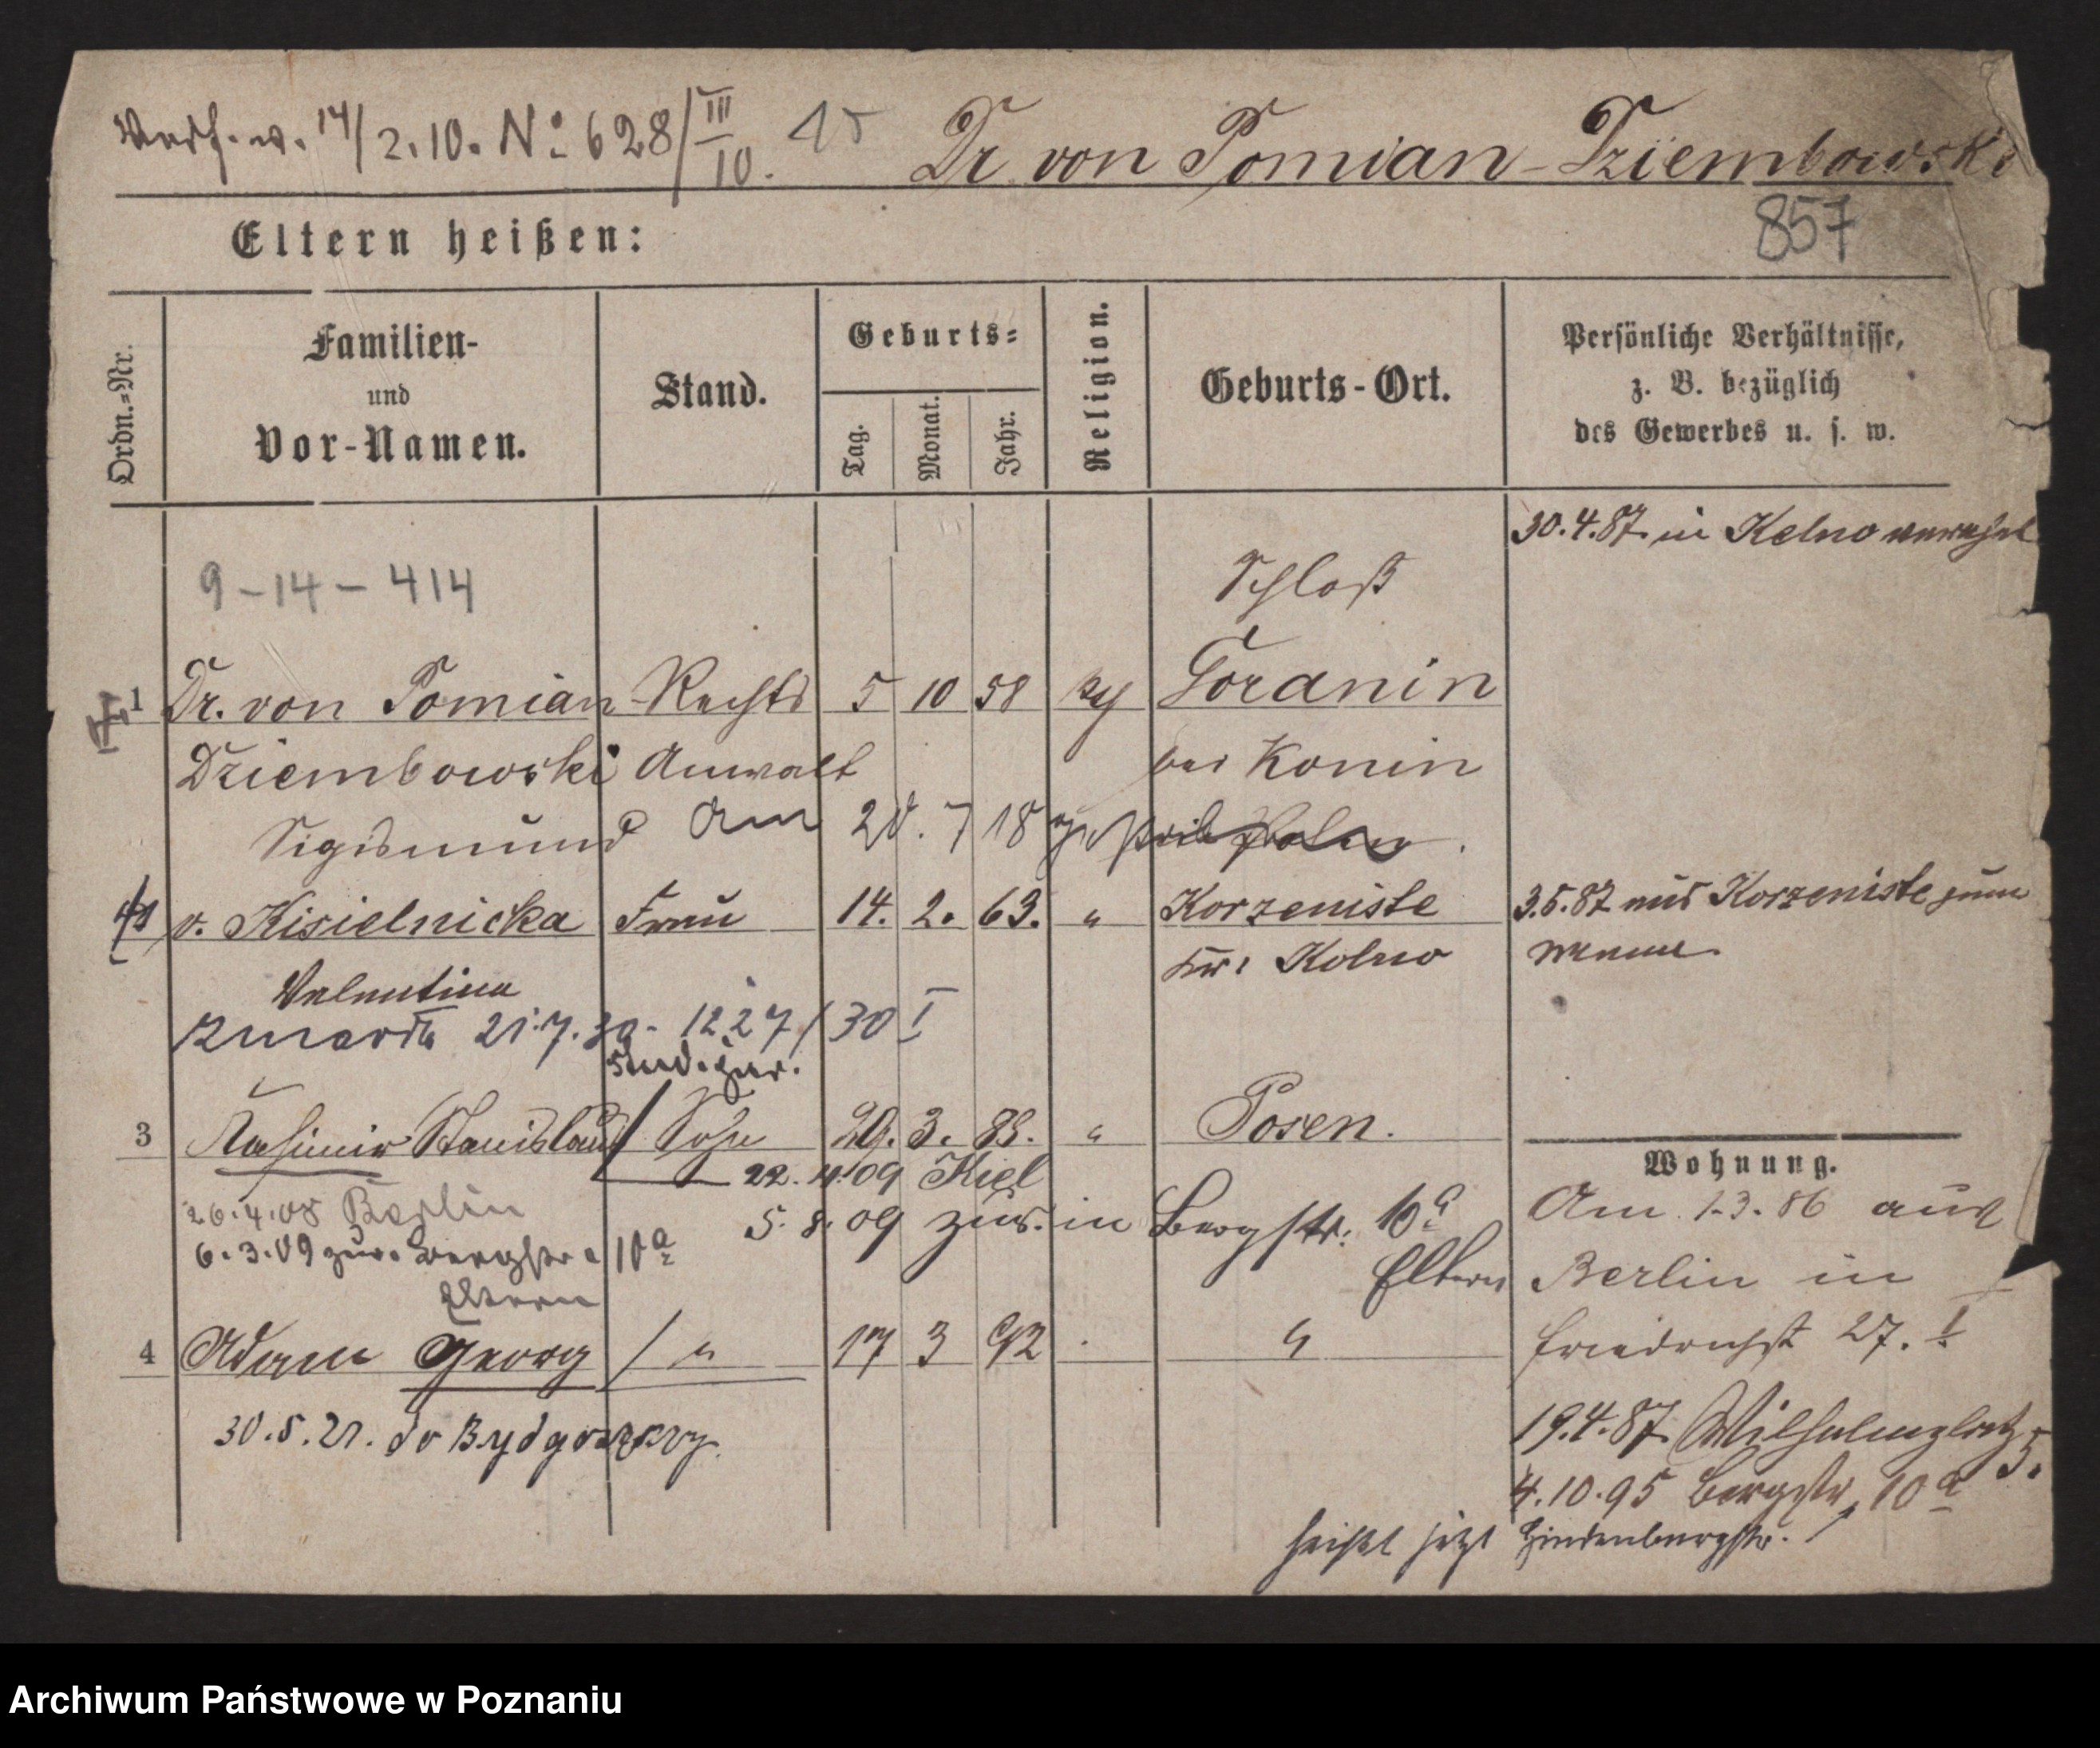 Verf. v. 14/2.10. No: 628/III/10. 15 Dr von Pomian-Dziembowski
857
Eltern heißen:
Ordn.-Nr.
Familien-
und
Vor-Namen.
Stand.
Geburts-
Tag.
Monat.
Jahr.
Religion.
Geburts-Ort.
Persönliche Verhältnisse,
z. B. bezüglich
des Gewerbes u. s. w.
30.4.87. in Kolno
9-14-414
Schloß
1 Dr. von Pomian Rechts 5 10 58 Goranin
Dziembowski Anwalt bei Konin
Sigismund am 20. 7 18
v. Kisielnicka Frau 14. 2. 63. " Korzeniste 3.5.87 aus Korzeniste zum
Kr: Kolno Manne.
Valentina
zmarła 21.7.30 - 1227/30 I
stud. jur.
3 Kasimir Stanislaus / Sohn 29. 3. 88. " Posen.
22. 4. 09 Kiel
Wohnung.
26.4.08 Berlin
5. 8. 09 zur. in Bergstr: 10a
Am 1.3.86 aus
6.3.09 zur. Bergstr. 10a
Eltern
Eltern
Berlin in
4 Adam Georg / " 17 3 92 "
Friedrichst 27. I
30.5.21. do Bydgoszczy.
19.4.87. Wilhelmplatz 5.
4.10.95 Bergstr. 10a
heißt jetzt Hindenburgstr.
Archiwum Państwowe w Poznaniu